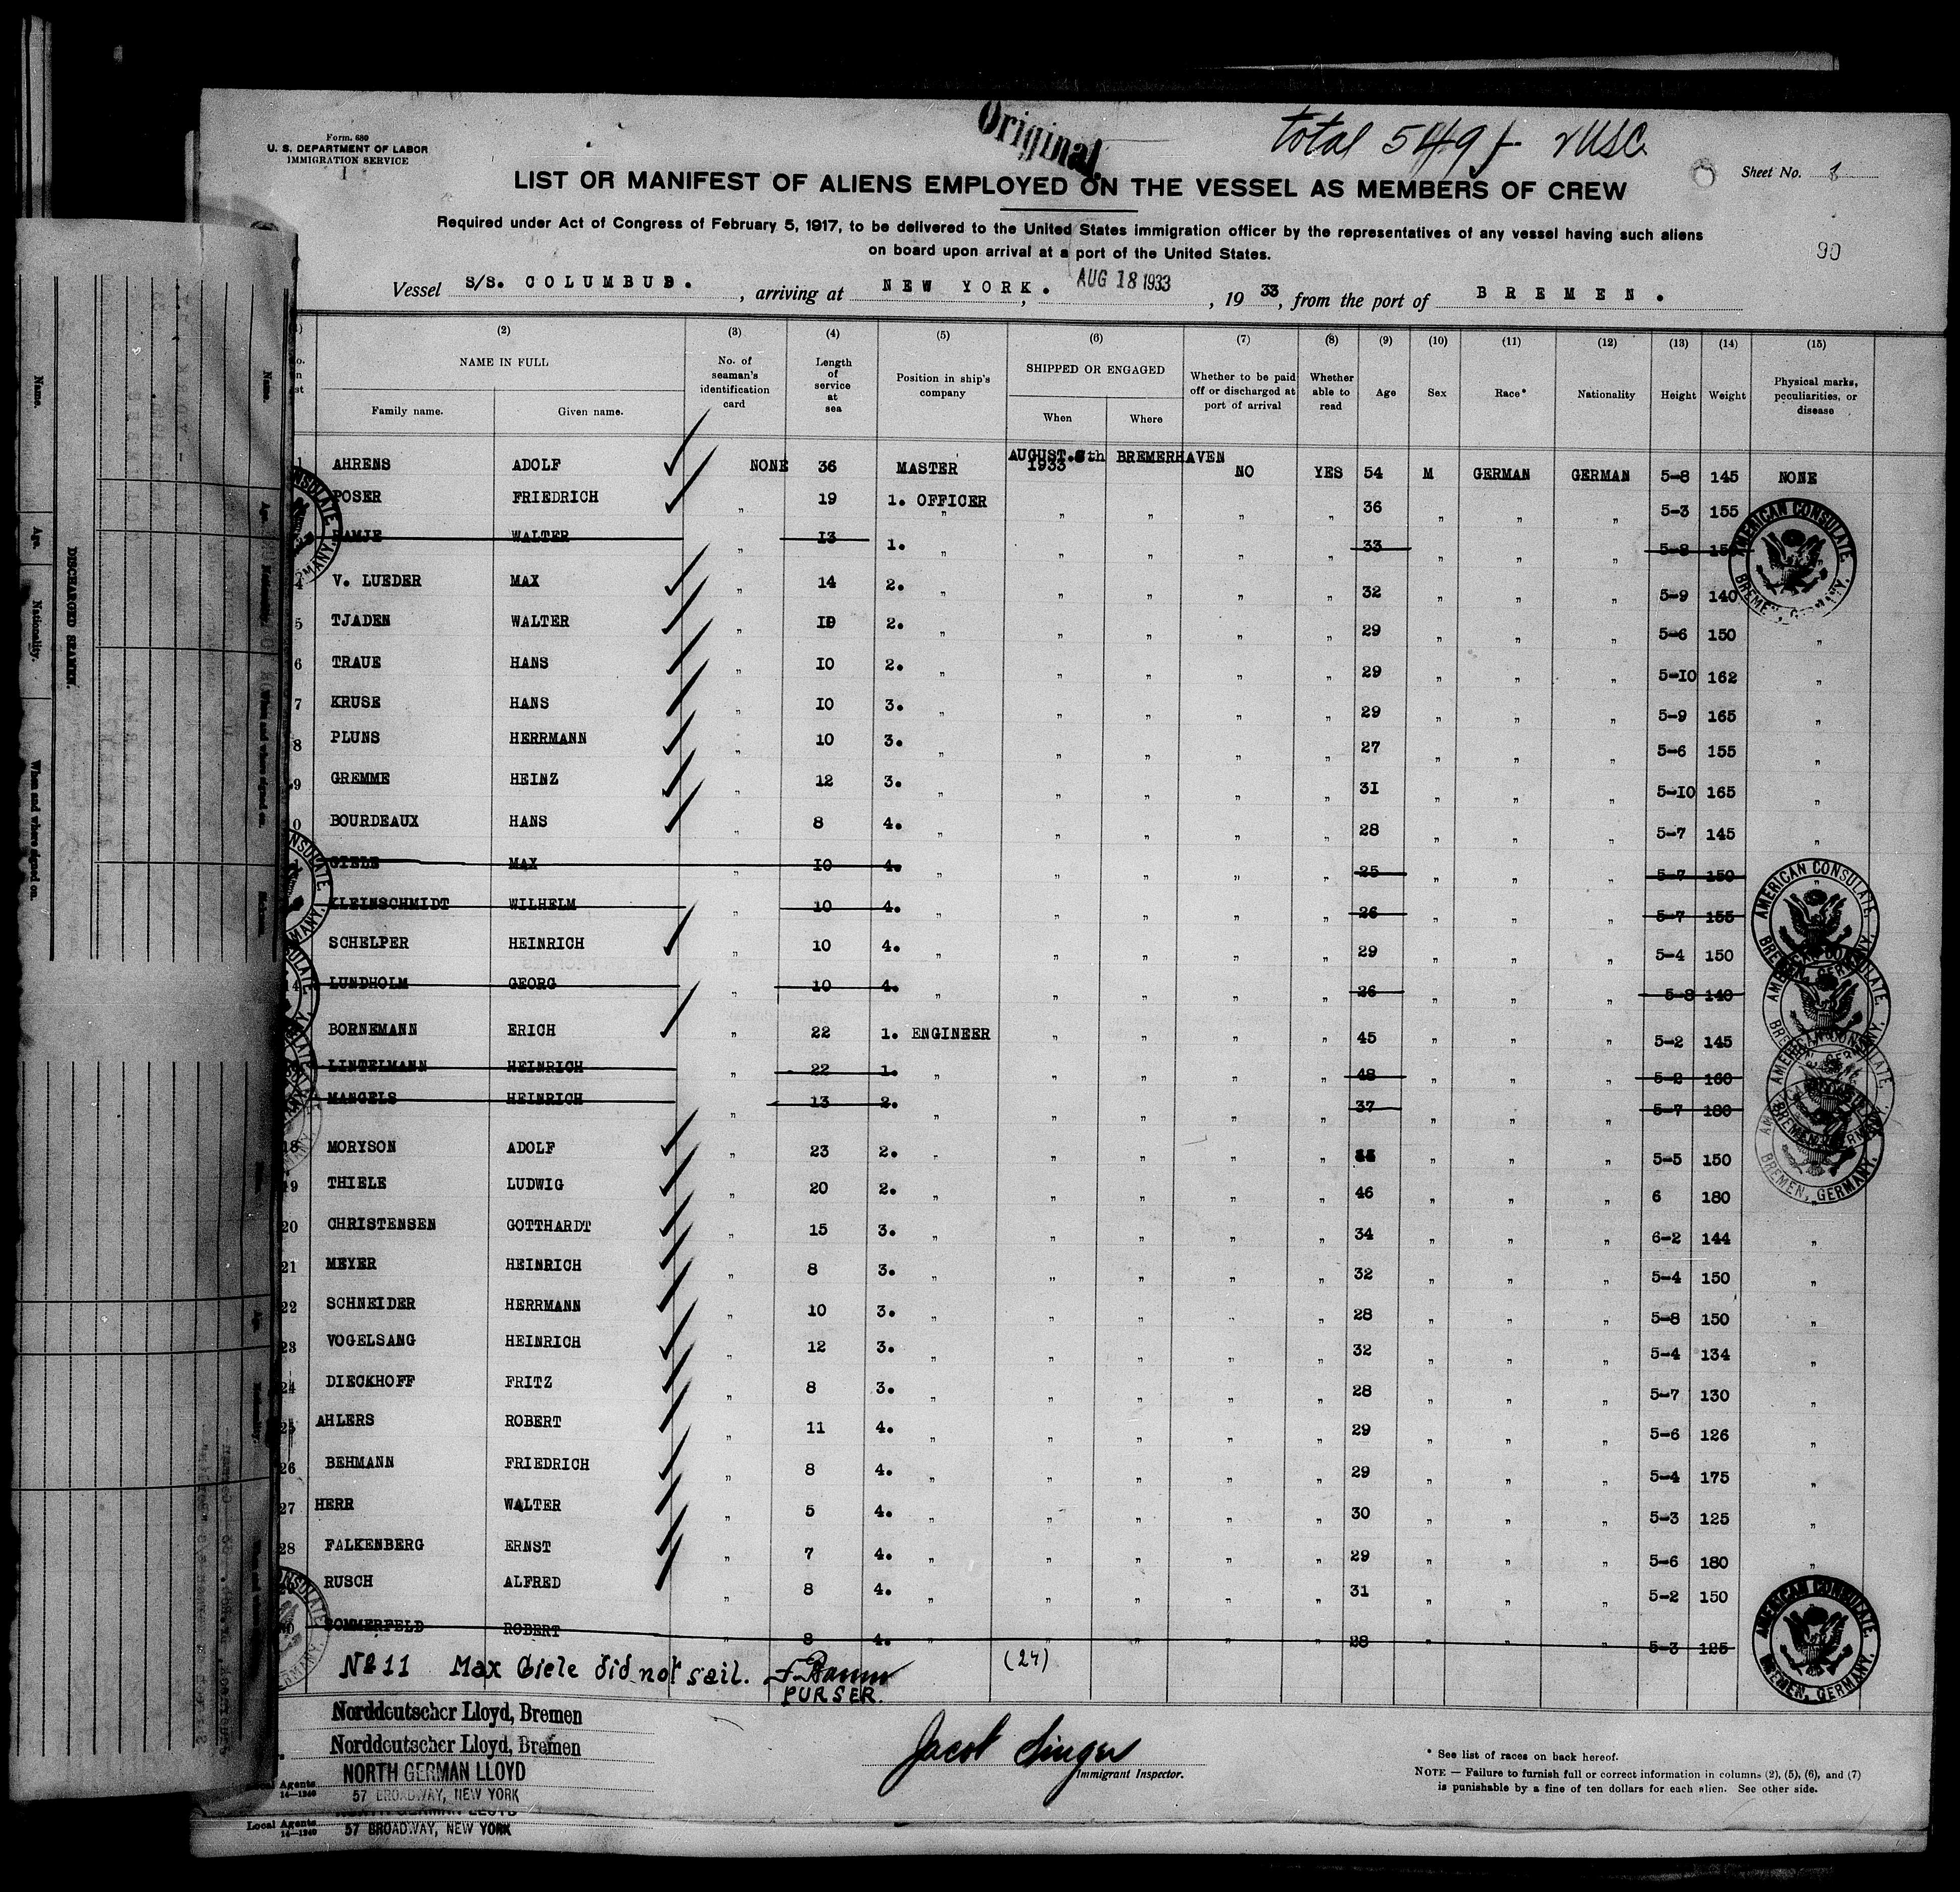 Form. 680
U. S. DEPARTMENT OF LABOR
IMMIGRATION SERVICE
Original
total 549
Sheet No. 1
LIST OR MANIFEST OF ALIENS EMPLOYED ON THE VESSEL AS MEMBERS OF CREW
Required under Act of Congress of February 5, 1917, to be delivered to the United States immigration officer by the representatives of any vessel having such aliens
on board upon arrival at a port of the United States.
90
Vessel S/S. COLUMBUS. , arriving at NEW YORK. , AUG 18 1933 , 19 33, from the port of BREMEN.
(2) (3) (4) (5) (6) (7) (8) (9) (10) (11) (12) (13) (14) (15)
NAME IN FULL No. of seaman's identification card Length of service at sea Position in ship's company SHIPPED OR ENGAGED Whether to be paid off or discharged at port of arrival Whether able to read Age Sex Race* Nationality Height Weight Physical marks, peculiarities, or disease
Family name. Given name. When Where
1 AHRENS ADOLF NONE 36 MASTER AUGUST. 1933 BREMERHAVEN NO YES 54 M GERMAN GERMAN 5-8 145 NONE
POSER FRIEDRICH " 19 1. OFFICER " " " " 36 " " " 5-3 155
WALTER " 13 1. " " " " " 33 " " " 5-8
4 V. LUEDER MAX " 14 2. " " " " " 32 " " " 5-9 140
5 TJADEN WALTER " 2. " " " " " 29 " " " 5-6 150 "
6 TRAUE HANS " 10 2. " " " " " 29 " " " 5-10 162 "
7 KRUSE HANS " 10 3. " " " " " 29 " " " 5-9 165 "
8 PLUNS HERRMANN " 10 3. " " " " " 27 " " " 5-6 155 "
9 GREMME HEINZ " 12 3. " " " " " 31 " " " 5-10 165 "
0 BOURDEAUX HANS " 8 4. " " " " " 28 " " " 5-7 145 "
GIELE MAX " 10 4. " " " " " 25 " " " 5-7 150 "
KLEINSCHMIDT WILHELM " 10 4. " " " " " 26 " " " 5-7 155
SCHELPER HEINRICH " 10 4. " " " " " 29 " " " 5-4 150
14 LUNDHOLM GEORG " 10 4. " " " " " 26 " " " 5-8 140
BORNEMANN ERICH " 22 1. ENGINEER " " " " 45 " " " 5-2 145
LINTELMANN HEINRICH " 22 1. " " " " " 48 " " " 5-2 160
MANGELS HEINRICH " 13 2. " " " " " 37 " " " 5-7 180
18 MORYSON ADOLF " 23 2. " " " " " " " " 5-5 150
19 THIELE LUDWIG " 20 2. " " " " " 46 " " " 6 180 "
20 CHRISTENSEN GOTTHARDT " 15 3. " " " " " 34 " " " 6-2 144 "
21 MEYER HEINRICH " 8 3. " " " " " 32 " " " 5-4 150 "
22 SCHNEIDER HERRMANN " 10 3. " " " " " 28 " " " 5-8 150 "
23 VOGELSANG HEINRICH " 12 3. " " " " " 32 " " " 5-4 134 "
24 DIECKHOFF FRITZ " 8 3. " " " " " 28 " " " 5-7 130 "
25 AHLERS ROBERT " 11 4. " " " " " 29 " " " 5-6 126 "
26 BEHMANN FRIEDRICH " 8 4. " " " " " 29 " " " 5-4 175 "
27 HERR WALTER " 5 4. " " " " " 30 " " " 5-3 125 "
28 FALKENBERG ERNST " 7 4. " " " " " 29 " " " 5-6 180 "
RUSCH ALFRED " 8 4. " " " " " 31 " " " 5-2 150
SOMMERFELD ROBERT " 8 4. " " " " " 28 " " " 5-3 125
AMERICAN CONSULATE, BREMEN, GERMANY.
AMERICAN CONSULATE, BREMEN, GERMANY.
AMERICAN CONSULATE, BREMEN, GERMANY.
AMERICAN CONSULATE, BREMEN, GERMANY.
BREMEN, GERMANY.
AMERICAN CONSULATE, BREMEN, GERMANY.
No 11 Max Giele did not sail.
PURSER.
(24)
Norddeutscher Lloyd, Bremen
Norddeutscher Lloyd, Bremen
NORTH GERMAN LLOYD
57 BROADWAY, NEW YORK
Local Agents
14—1240
NORTH GERMAN LLOYD
57 BROADWAY, NEW YORK
Local Agents
14—1240
Jacob Singer
Immigrant Inspector.
* See list of races on back hereof.
NOTE — Failure to furnish full or correct information in columns (2), (5), (6), and (7)
is punishable by a fine of ten dollars for each alien. See other side.
Name.
Age.
Nationality.
When and where signed on.
DISCHARGED SEAMEN.
Name.
Age.
Nationality.
When and where signed on.